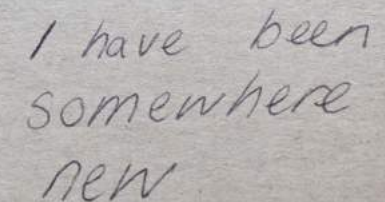 I have been
somewhere
new